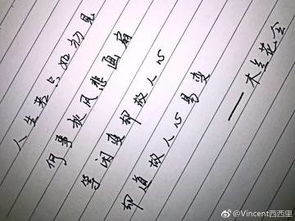 人生若只如初见
何事秋风悲画扇
等闲变却故人心
却道故人心易变
——木兰花令
@Vincent西西里